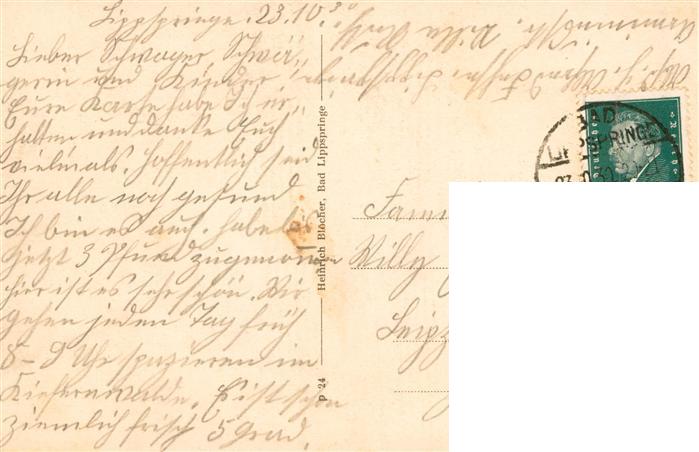 Lippspringe. 23.10.30
Lieber Schwager, Schwä-
gerin und Kinder,
Eure Karte habe ich er-
halten und danke Euch
vielmals. Hoffentlich seid
Ihr alle noch gesund
Ich bin es auch. habe
jetzt 3 Pfund zugenommen
hier ist es sehr schön. Wir
gehen jeden Tag früh
8-9 Uhr spazieren im
Kiefernwalde. Es ist schon
ziemlich frisch 5 Grad.
Arminiusstr. Villa
p 24 Heinrich Blöcher, Bad Lippspringe
BAD
LIPPSPRINGE
Fami
Willy
Leipz